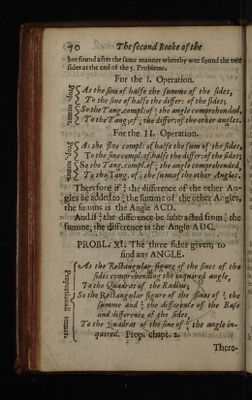 70 The second Booke of the
bee found after the same manner whereby wee found the two
sides at the end of the 5. Probleme.
For the I. Operation.
Prop. tearm.
As the sine of halfe the summe of the sides,
To the sine of halfe the differ: of the sides;
So the Tang. compl. of ½ the angle comprehended,
To the Tang. of ½ the differ: of the other angles.
For the II. Operation.
Prop. tearm.
As the sine compl: of halfe the sum of the sides,
To the sine compl: of halfe the differ: of the sides;
So the Tang. compl. of ½ the angle comprehended,
To the Tang. of ½ the sum of the other Angles.
Therefore if ½ the difference of the other An-
gles be added to ½ the summe of the other Angles,
the summe is the Angle ACD.
And if ½ the difference be subtracted from ½ the
summe, the difference is the Angle ADC.
PROBL. XI. The three sides given; to
find any ANGLE.
Proportionall tearmes.
As the Rectangular figure of the sines of the
sides comprehending the inquired angle,
To the Quadrat of the Radius;
So the Rectangular figure of the sines of ½ the
summe and ½ the difference of the Base
and difference of the sides,
To the Quadrat of the sine of ½ the angle in-
quired. Prop. chapt. 2.
There-